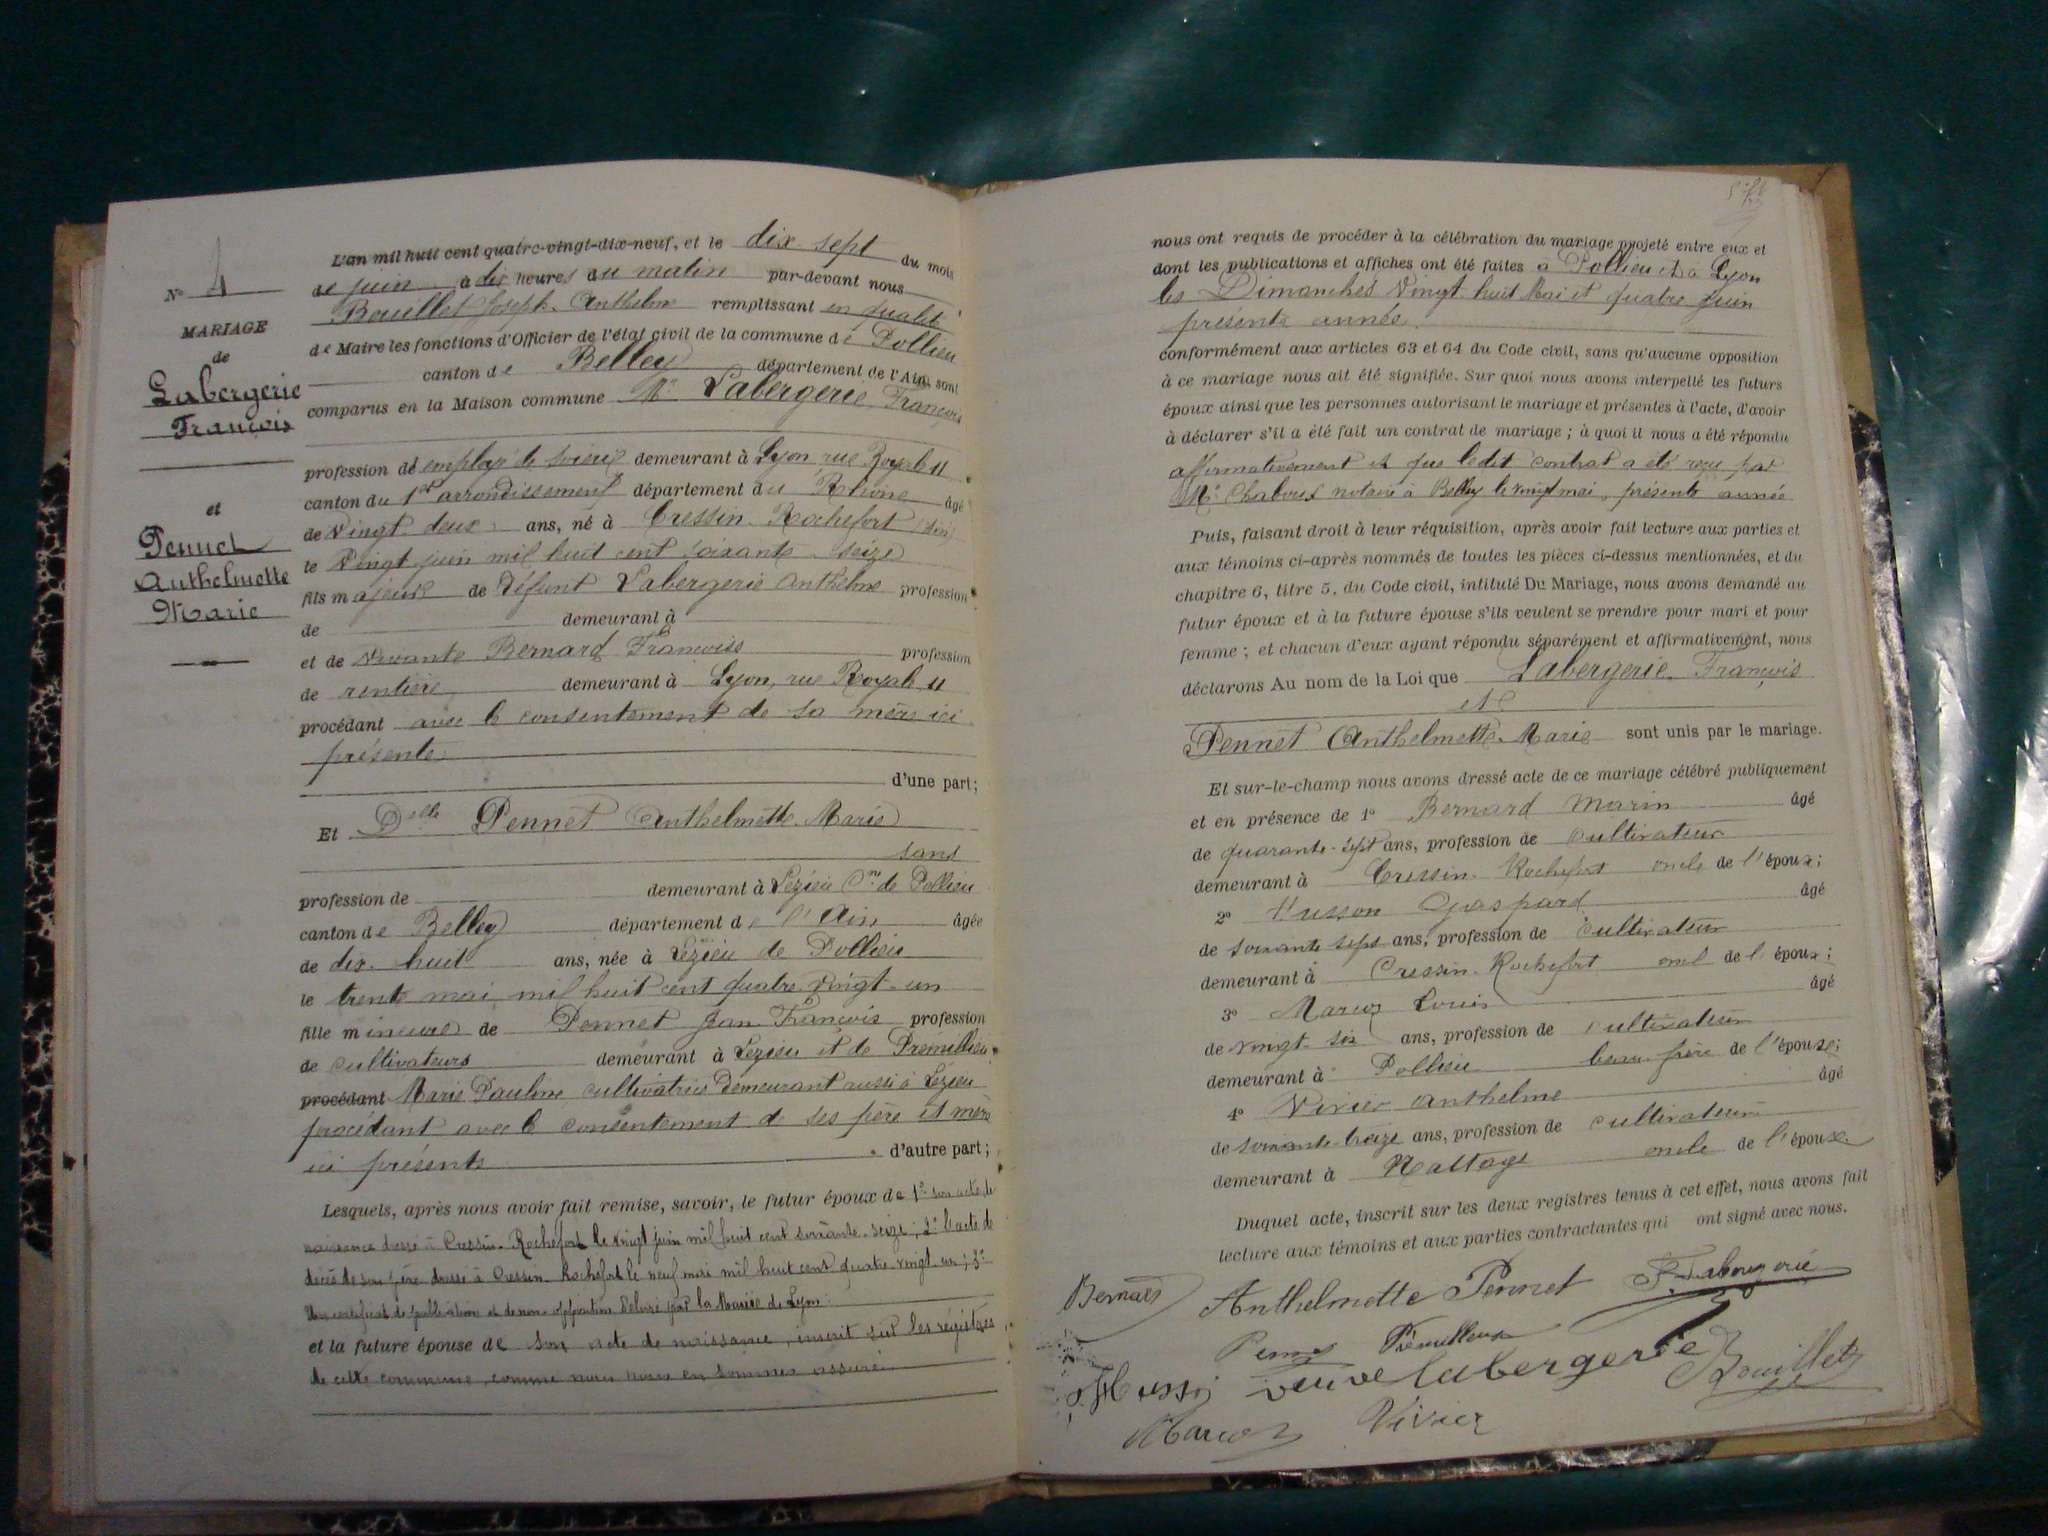 N° 4
MARIAGE
de
Labergerie
François
et
Pennet
Anthelmette
Marie
L'an mil huit cent quatre-vingt-dix-neuf, et le dix sept du mois
de juin à dix heures du matin par-devant nous
Bouillet Joseph Anthelme remplissant en qualité
de Maire les fonctions d'Officier de l'état civil de la commune de Pollieu
canton de Belley département de l'Ain, sont
comparus en la Maison commune Mr Labergerie François
profession de employé de demeurant à Lyon rue Royale 11
canton du 1er arrondissement département du Rhône âgé
de Vingt deux ans, né à Cressin-Rochefort (Ain)
le Vingt juin mil huit cent soixante seize
fils majeur de Défunt Labergerie Anthelme profession
de demeurant à
et de vivante Bernard Françoise profession
de rentière demeurant à Lyon, rue Royale 11
procédant avec le consentement de sa mère ici
présente
d'une part;
Et Delle Pennet Anthelmette Marie
sans
profession de demeurant à Lézieu Cne de Pollieu
canton de Belley département de l'Ain âgée
de dix-huit ans, née à Lézieu de Pollieu
le trente mai mil huit cent quatre vingt-un
fille mineure de Pennet Jean François profession
de cultivateurs demeurant à Lézieu et de Premillieu
procédant Marie Pauline cultivatrice demeurant aussi à Lézieu
procédant avec le consentement de ses père et mère
ici présents d'autre part;
Lesquels, après nous avoir fait remise, savoir, le futur époux de 1° son acte de
naissance dressé à Cressin-Rochefort le vingt juin mil huit cent soixante-seize; 2° l'acte de
décès de son père dressé à Cressin-Rochefort le neuf mai mil huit cent quatre vingt-un; 3°
Un certificat de publication et de non-opposition délivré par la Mairie de Lyon
et la future épouse de son acte de naissance, inscrit sur les registres
de cette commune, comme nous nous en sommes assuré
nous ont requis de procéder à la célébration du mariage projeté entre eux et
dont les publications et affiches ont été faites à Pollieu et à Lyon
les Dimanches Vingt-huit Mai et quatre juin
présente année.
conformément aux articles 63 et 64 du Code civil, sans qu'aucune opposition
à ce mariage nous ait été signifiée. Sur quoi nous avons interpellé les futurs
époux ainsi que les personnes autorisant le mariage et présentes à l'acte, d'avoir
à déclarer s'il a été fait un contrat de mariage; à quoi il nous a été répondu
affirmativement et que ledit contrat a été reçu par
Me notaire à Belley le vingt mai, présente année
Puis, faisant droit à leur réquisition, après avoir fait lecture aux parties et
aux témoins ci-après nommés de toutes les pièces ci-dessus mentionnées, et du
chapitre 6, titre 5, du Code civil, intitulé Du Mariage, nous avons demandé au
futur époux et à la future épouse s'ils veulent se prendre pour mari et pour
femme; et chacun d'eux ayant répondu séparément et affirmativement, nous
déclarons Au nom de la Loi que Labergerie François
et
Pennet Anthelmette Marie sont unis par le mariage.
Et sur-le-champ nous avons dressé acte de ce mariage célébré publiquement
et en présence de 1° Bernard Marin âgé
de quarante-sept ans, profession de cultivateur
demeurant à Cressin-Rochefort oncle de l'époux;
2° Husson Gaspard âgé
de soixante sept ans, profession de cultivateur
demeurant à Cressin-Rochefort oncle de l'époux;
3° Marcoz Louis âgé
de vingt-six ans, profession de cultivateur
demeurant à Pollieu beau-frère de l'épouse;
4° Vivier Anthelme âgé
de soixante-treize ans, profession de cultivateur
demeurant à Nattage oncle de l'épouse
Duquel acte, inscrit sur les deux registres tenus à cet effet, nous avons fait
lecture aux témoins et aux parties contractantes qui ont signé avec nous.
Bernard Anthelmette Pennet F. Labergerie
Pennet Prémillieux
veuve labergerie Bouillet
Marcoz Vivier